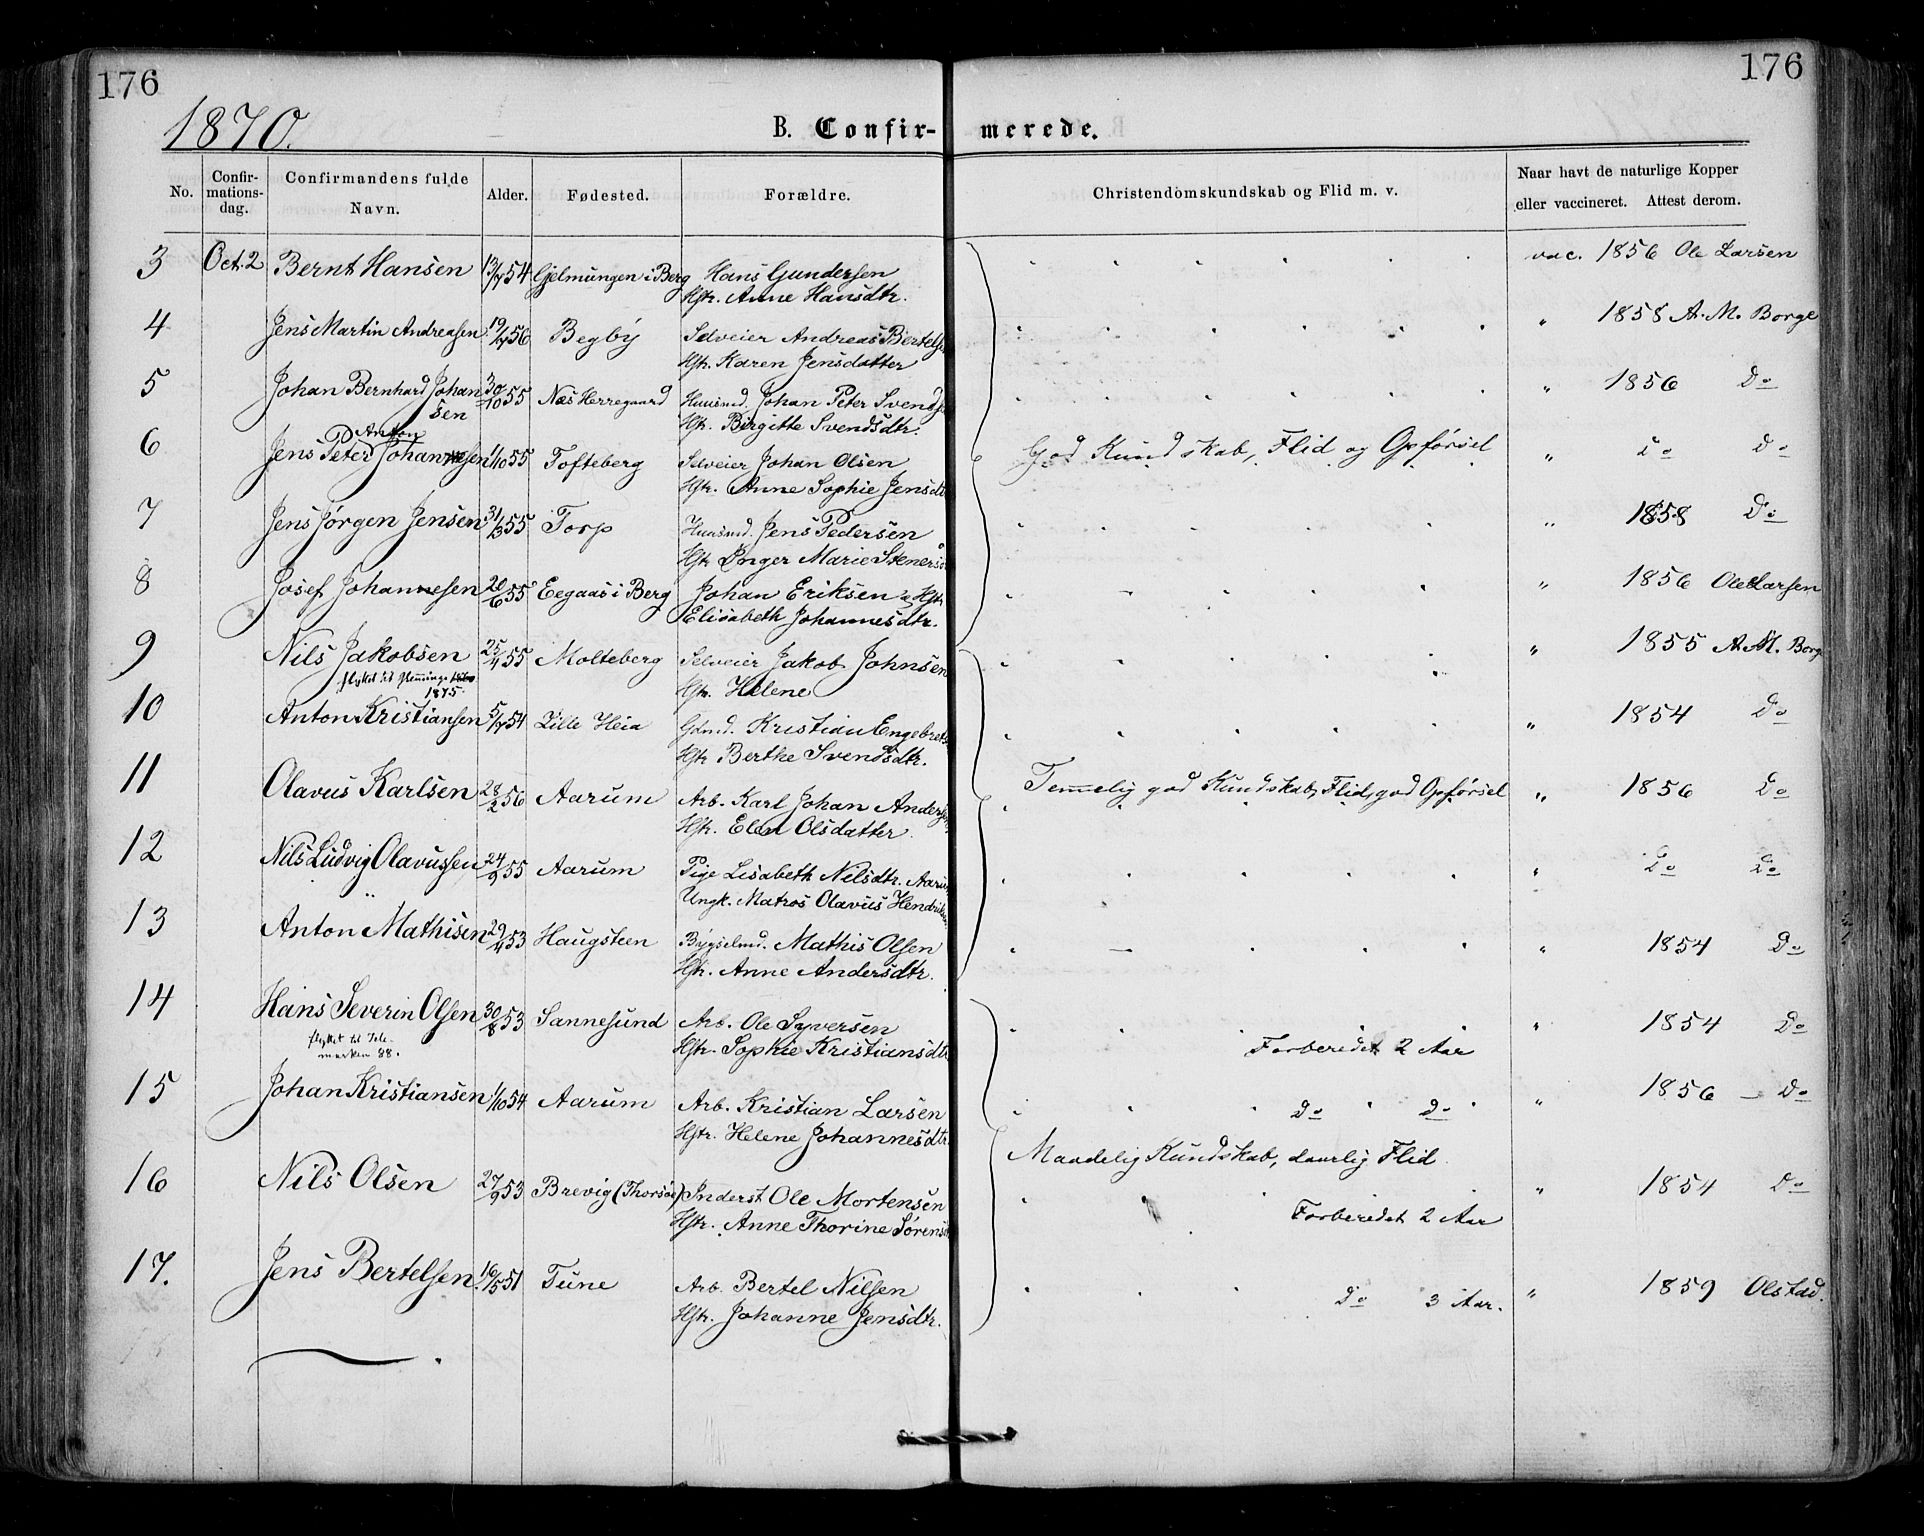 176
176
1870.
B. Confir- merede.
No.
Confir-
mations-
dag.
Confirmandens fulde
Navn.
Alder.
Fødested.
Forældre.
Christendomskundskab og Flid m. v.
Naar havt de naturlige Kopper
eller vaccineret. Attest derom.
3 Oct. 2 Bernt Hansen 13/7 54 Gjelmungen i Berg Hans Gundersen vac. 1856 Ole Larsen
Hstr. Anne Hansdtr.
4 Jens Martin Andreasen 19/7 56 Begby Selveier Andreas Bertelsen " 1858 A. M. Borge
Hstr. Karen Jensdatter
5 Johan Bernhard Johan 30/10 55 Næs Herregaard Huusmd. Johan Peter Svends " 1856 Do
sen Hstr. Birgitte Svendsdtr.
Anton
6 Jens Peter Johannesen 1/10 55 Tofteberg Selveier Johan Olsen God Kundskab, Flid og Opførsel " Do Do
Hstr. Anne Sophie Jensdt
7 Jens Jørgen Jensen 31/3 55 Torp Huusmd. Jens Pedersen " 1858 Do
Hstr. Inger Marie Steners
8 Josef Johannesen 20/6 55 Eegaas i Berg Johan Eriksen & Hstr " 1856 Ole Larsen
Elisabeth Johannesdtr.
9 Nils Jakobsen 25/4 55 Molteberg Selveier Jakob Johnsen " 1855 A. M. Borg
flyttet til Glemminge
1875. Hstr. Helene
10 Anton Kristiansen 5/7 54 Lille Heia Gdmd. Kristian Engebrets " 1854 Do
Hstr Berthe Svendsdtr.
11 Olavus Karlsen 28/2 56 Aarum Arb. Karl Johan Anders Temmelig god Kundskab, Flid, god Opførsel " 1856 Do
Hstr. Elen Olsdatter.
12 Nils Ludvig Olavussen 24/9 55 Aarum Pige Lisabeth Nilsdtr. Aarum " Do Do
Ungk. Matros Olavus Hendriksen
13 Anton Mathisen 29/4 53 Haugsteen Bygselmd. Mathis Olsen " 1854 Do
Hstr. Anne Andersdtr.
14 Hans Severin Olsen 30/8 53 Sannesund Arb. Ole Syversen " 1854 Do
flyttet til Tele-
marken 88. Hstr. Sophie Kristiansdt Forberedet 2 Aar
15 Johan Kristiansen 1/10 54 Aarum Arb. Kristian Larsen Do Do " 1856 – Do
Hstr. Helene Johannesdtr
Maadelig Kundskab, daarlig Flid.
16 Nils Olsen 27/9 53 Brevig (Thorsøe) Inderst Ole Mortensen " 1854 Do
Hstr. Anne Thorine Sørens Forberedet 2 Aar
17. Jens Bertelsen 16/5 51 Tune Arb. Bertel Nilsen Do 3 Aar. " 1859 Olstad.
Hstr. Johanne Jensdtr.